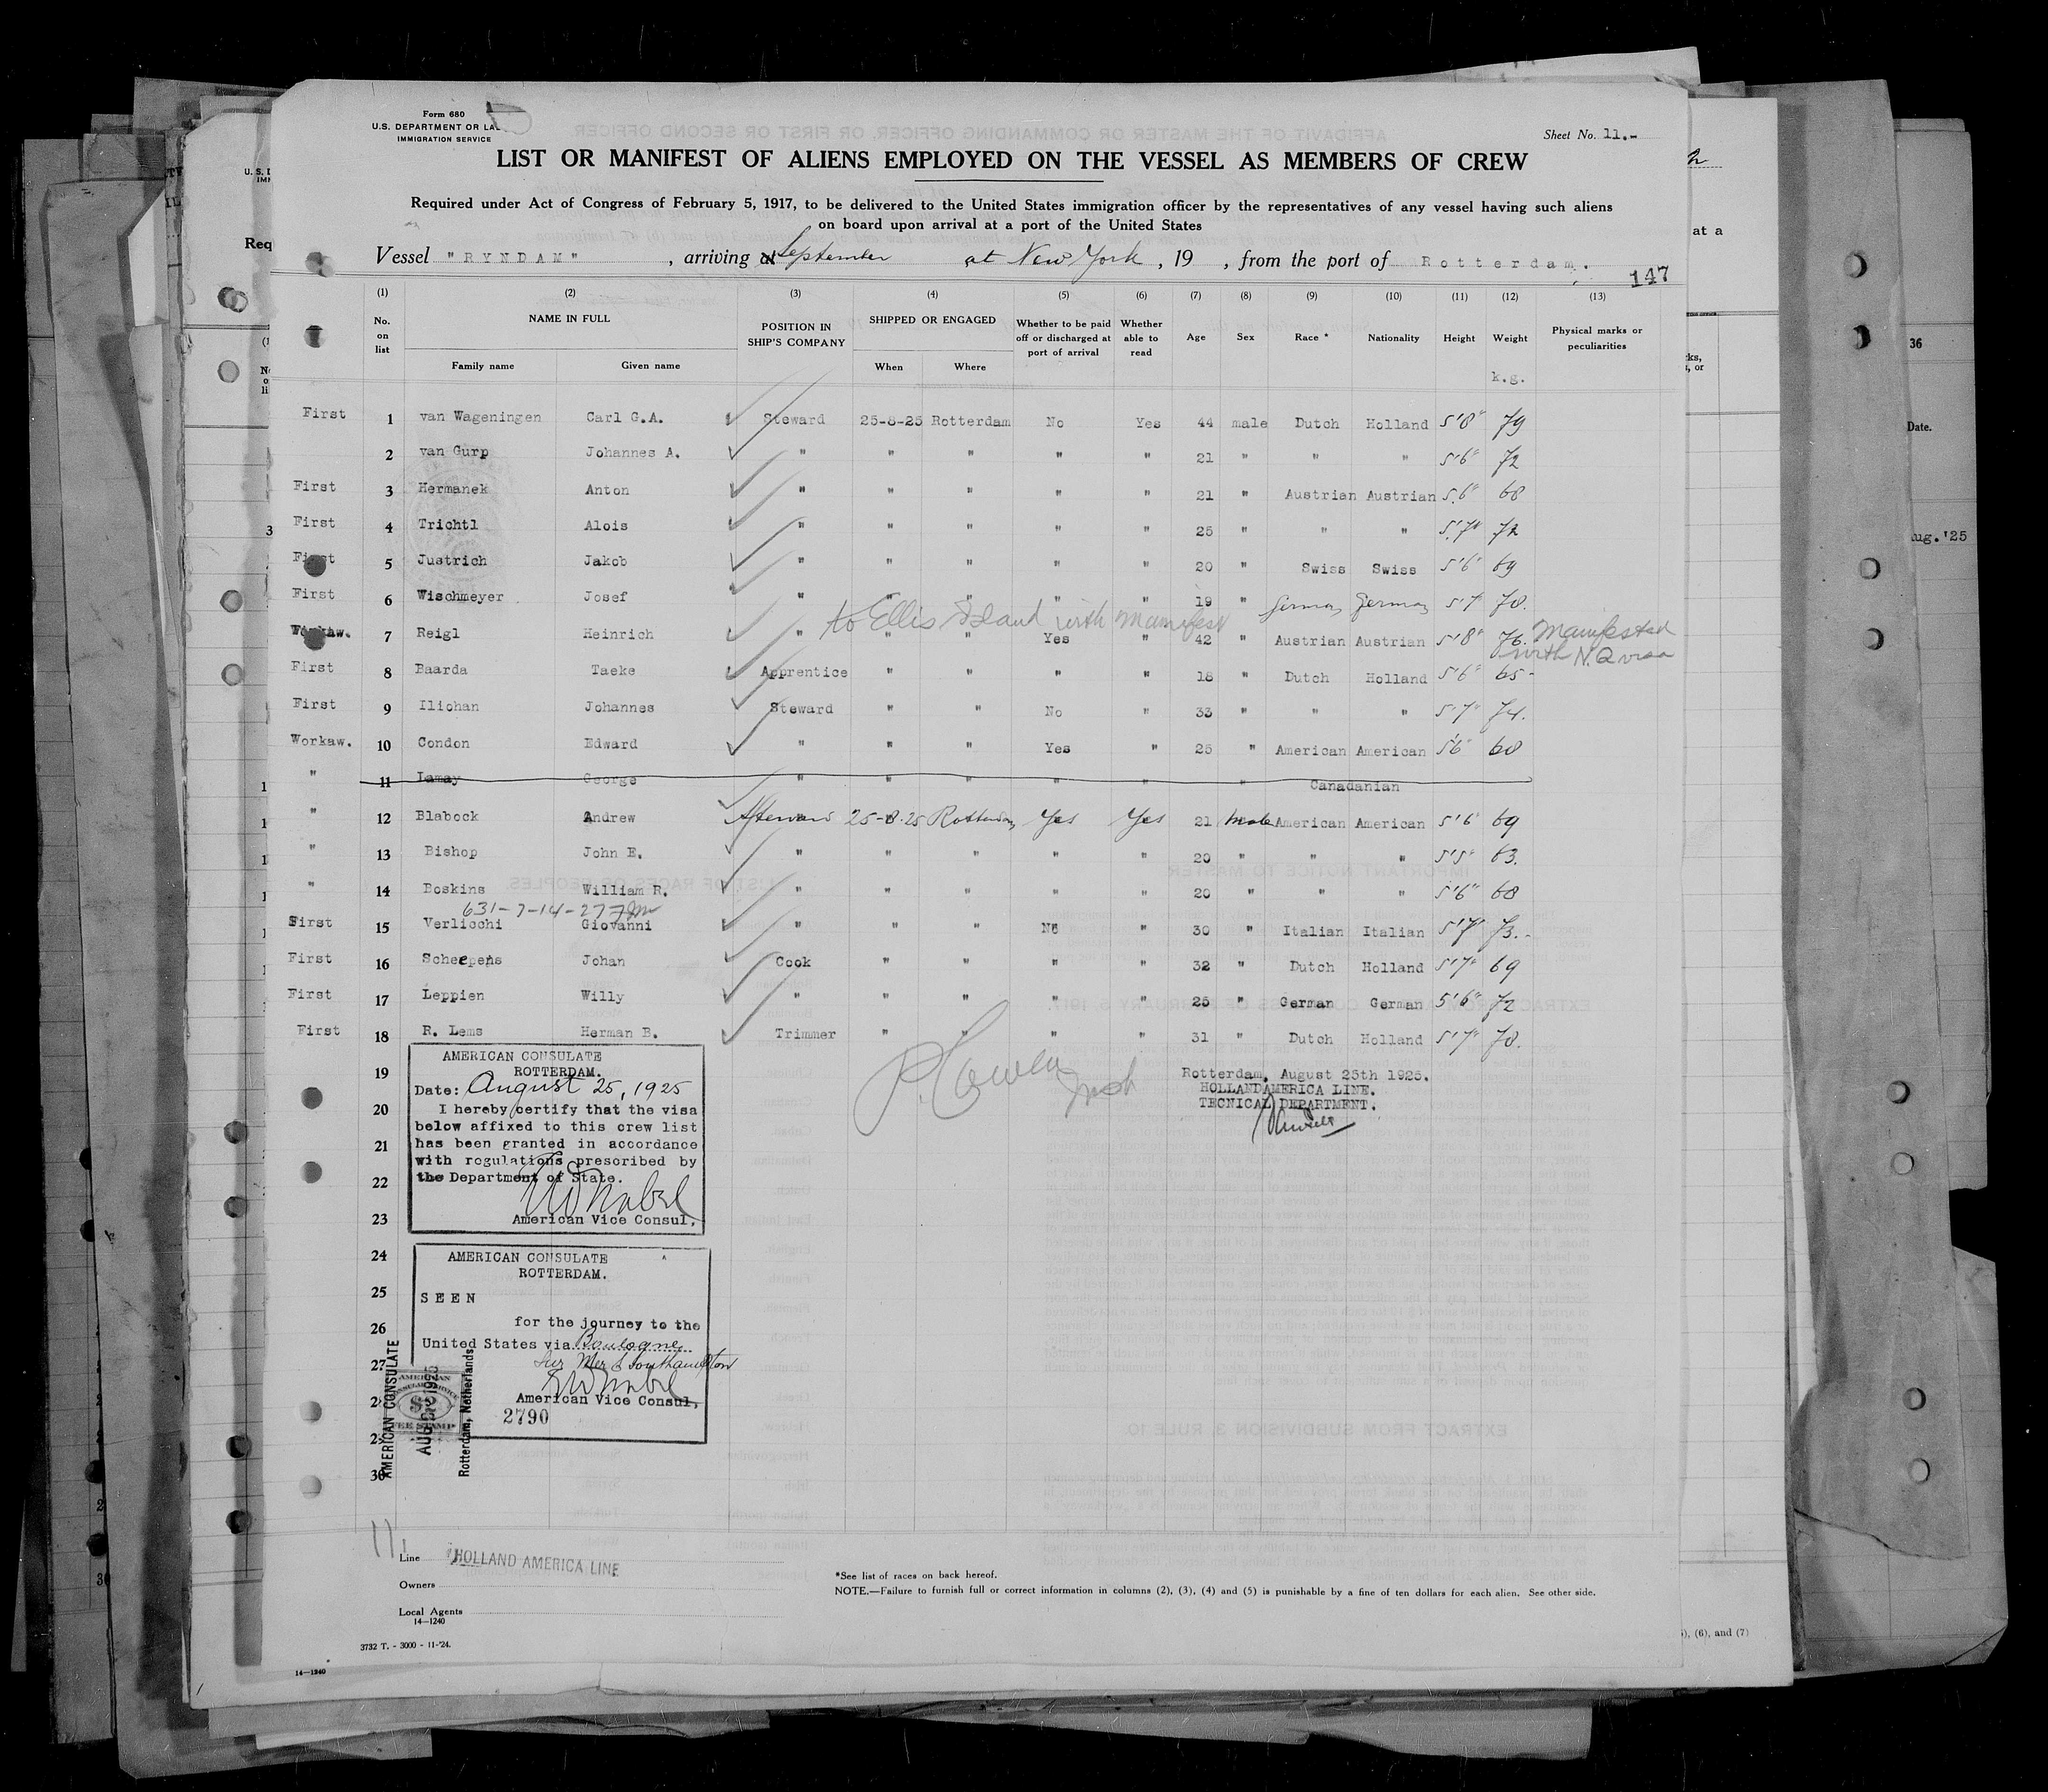 Form 680
U.S. DEPARTMENT OR LA
IMMIGRATION SERVICE
Sheet No. 11.-
LIST OR MANIFEST OF ALIENS EMPLOYED ON THE VESSEL AS MEMBERS OF CREW
Required under Act of Congress of February 5, 1917, to be delivered to the United States immigration officer by the representatives of any vessel having such aliens
on board upon arrival at a port of the United States
Vessel "RYNDAM" , arriving at September at New York , 19 , from the port of Rotterdam.
147
(1) (2) (3) (4) (5) (6) (7) (8) (9) (10) (11) (12) (13)
No. on list NAME IN FULL Family name Given name POSITION IN SHIP'S COMPANY SHIPPED OR ENGAGED When Where Whether to be paid off or discharged at port of arrival Whether able to read Age Sex Race * Nationality Height Weight Physical marks or peculiarities
k.g.
First 1 van Wageningen Carl G.A. Steward 25-8-25 Rotterdam No Yes 44 male Dutch Holland 5'8" 79
2 van Gurp Johannes A. " " " " " 21 " " " 5'6" 72
First 3 Hermanek Anton " " " " " 21 " Austrian Austrian 5'6" 68
First 4 Trichtl Alois " " " " " 25 " " " 5'7" 72
First 5 Justrich Jakob " " " " " 20 " Swiss Swiss 5'6" 69
First 6 Wischmeyer Josef " " " " " 19 " German German 5'7" 70.
to Ellis Island with manifest
Workaw. 7 Reigl Heinrich " " " Yes " 42 " Austrian Austrian 5'8" 76. Manifested
with N.Q visa
First 8 Baarda Taeke Apprentice " " " " 18 " Dutch Holland 5'6" 65-
First 9 Iliohan Johannes Steward " " No " 33 " " " 5'7" 74.
Workaw. 10 Condon Edward " " " Yes " 25 " American American 5'6 60
" 11 Lamay George " " " " " " Canadanian
" 12 Blabock Andrew Steward 25-8-25 Rotterdam Yes Yes 21 Male American American 5'6 69
" 13 Bishop John E. " " " " " 20 " " " 5'5" 63.
" 14 Boskins William R. " " " " " 20 " " " 5'6" 68
631-7-14-27
First 15 Verlicchi Giovanni " " " No " 30 " Italian Italian 5'7" 73.-
First 16 Scheepens Johan Cook " " " " 32 " Dutch Holland 5'7" 69
First 17 Leppien Willy " " " " " 25 " German German 5'6" 72
First 18 R. Lems Herman B. Trimmer " " " " 31 " Dutch Holland 5'7" 70.
19
20
21
22
23
24
25
26
27
28
29
30
AMERICAN CONSULATE
ROTTERDAM.
Date: August 25, 1925
I hereby certify that the visa
below affixed to this crew list
has been granted in accordance
with regulations prescribed by
the Department of State.
American Vice Consul,
P. Cowen
Insp
Rotterdam, August 25th 1925.
HOLLANDAMERICA LINE.
TECNICAL DEPARTMENT.
AMERICAN CONSULATE
ROTTERDAM.
SEEN
for the journey to the
United States via Boulogne
Sur Mer & Southampton
American Vice Consul,
2790
AMERICAN CONSULATE
AUG 25 1925
Rotterdam, Netherlands
AMERICAN
CONSULAR SERVICE
$2
FEE STAMP
Line HOLLAND AMERICA LINE
Owners
Local Agents
14—1240
*See list of races on back hereof.
NOTE.—Failure to furnish full or correct information in columns (2), (3), (4) and (5) is punishable by a fine of ten dollars for each alien. See other side.
3732 T. - 3000 - 11-'24.
14—1240
Req
at a
36
Date.
Aug.'25
, (6), and (7)